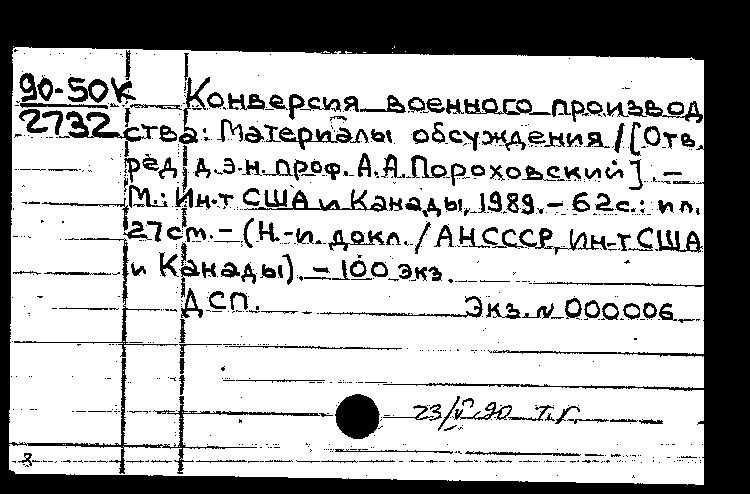 90-50К Конверсия военного производ
2732 ства: Материалы обсуждения / [Отв.
ред. д.э.н. проф. А.А.Пороховский]. –
М.: Ин-т США и Канады, 1989. – 62с.: ил.
27cm. – (Н.-и. докл. / АНСССР, Ин-т США
и Канады). – 100 экз.
ДСП. Экз. № 000006.
23/V.90 Т.Г.
8